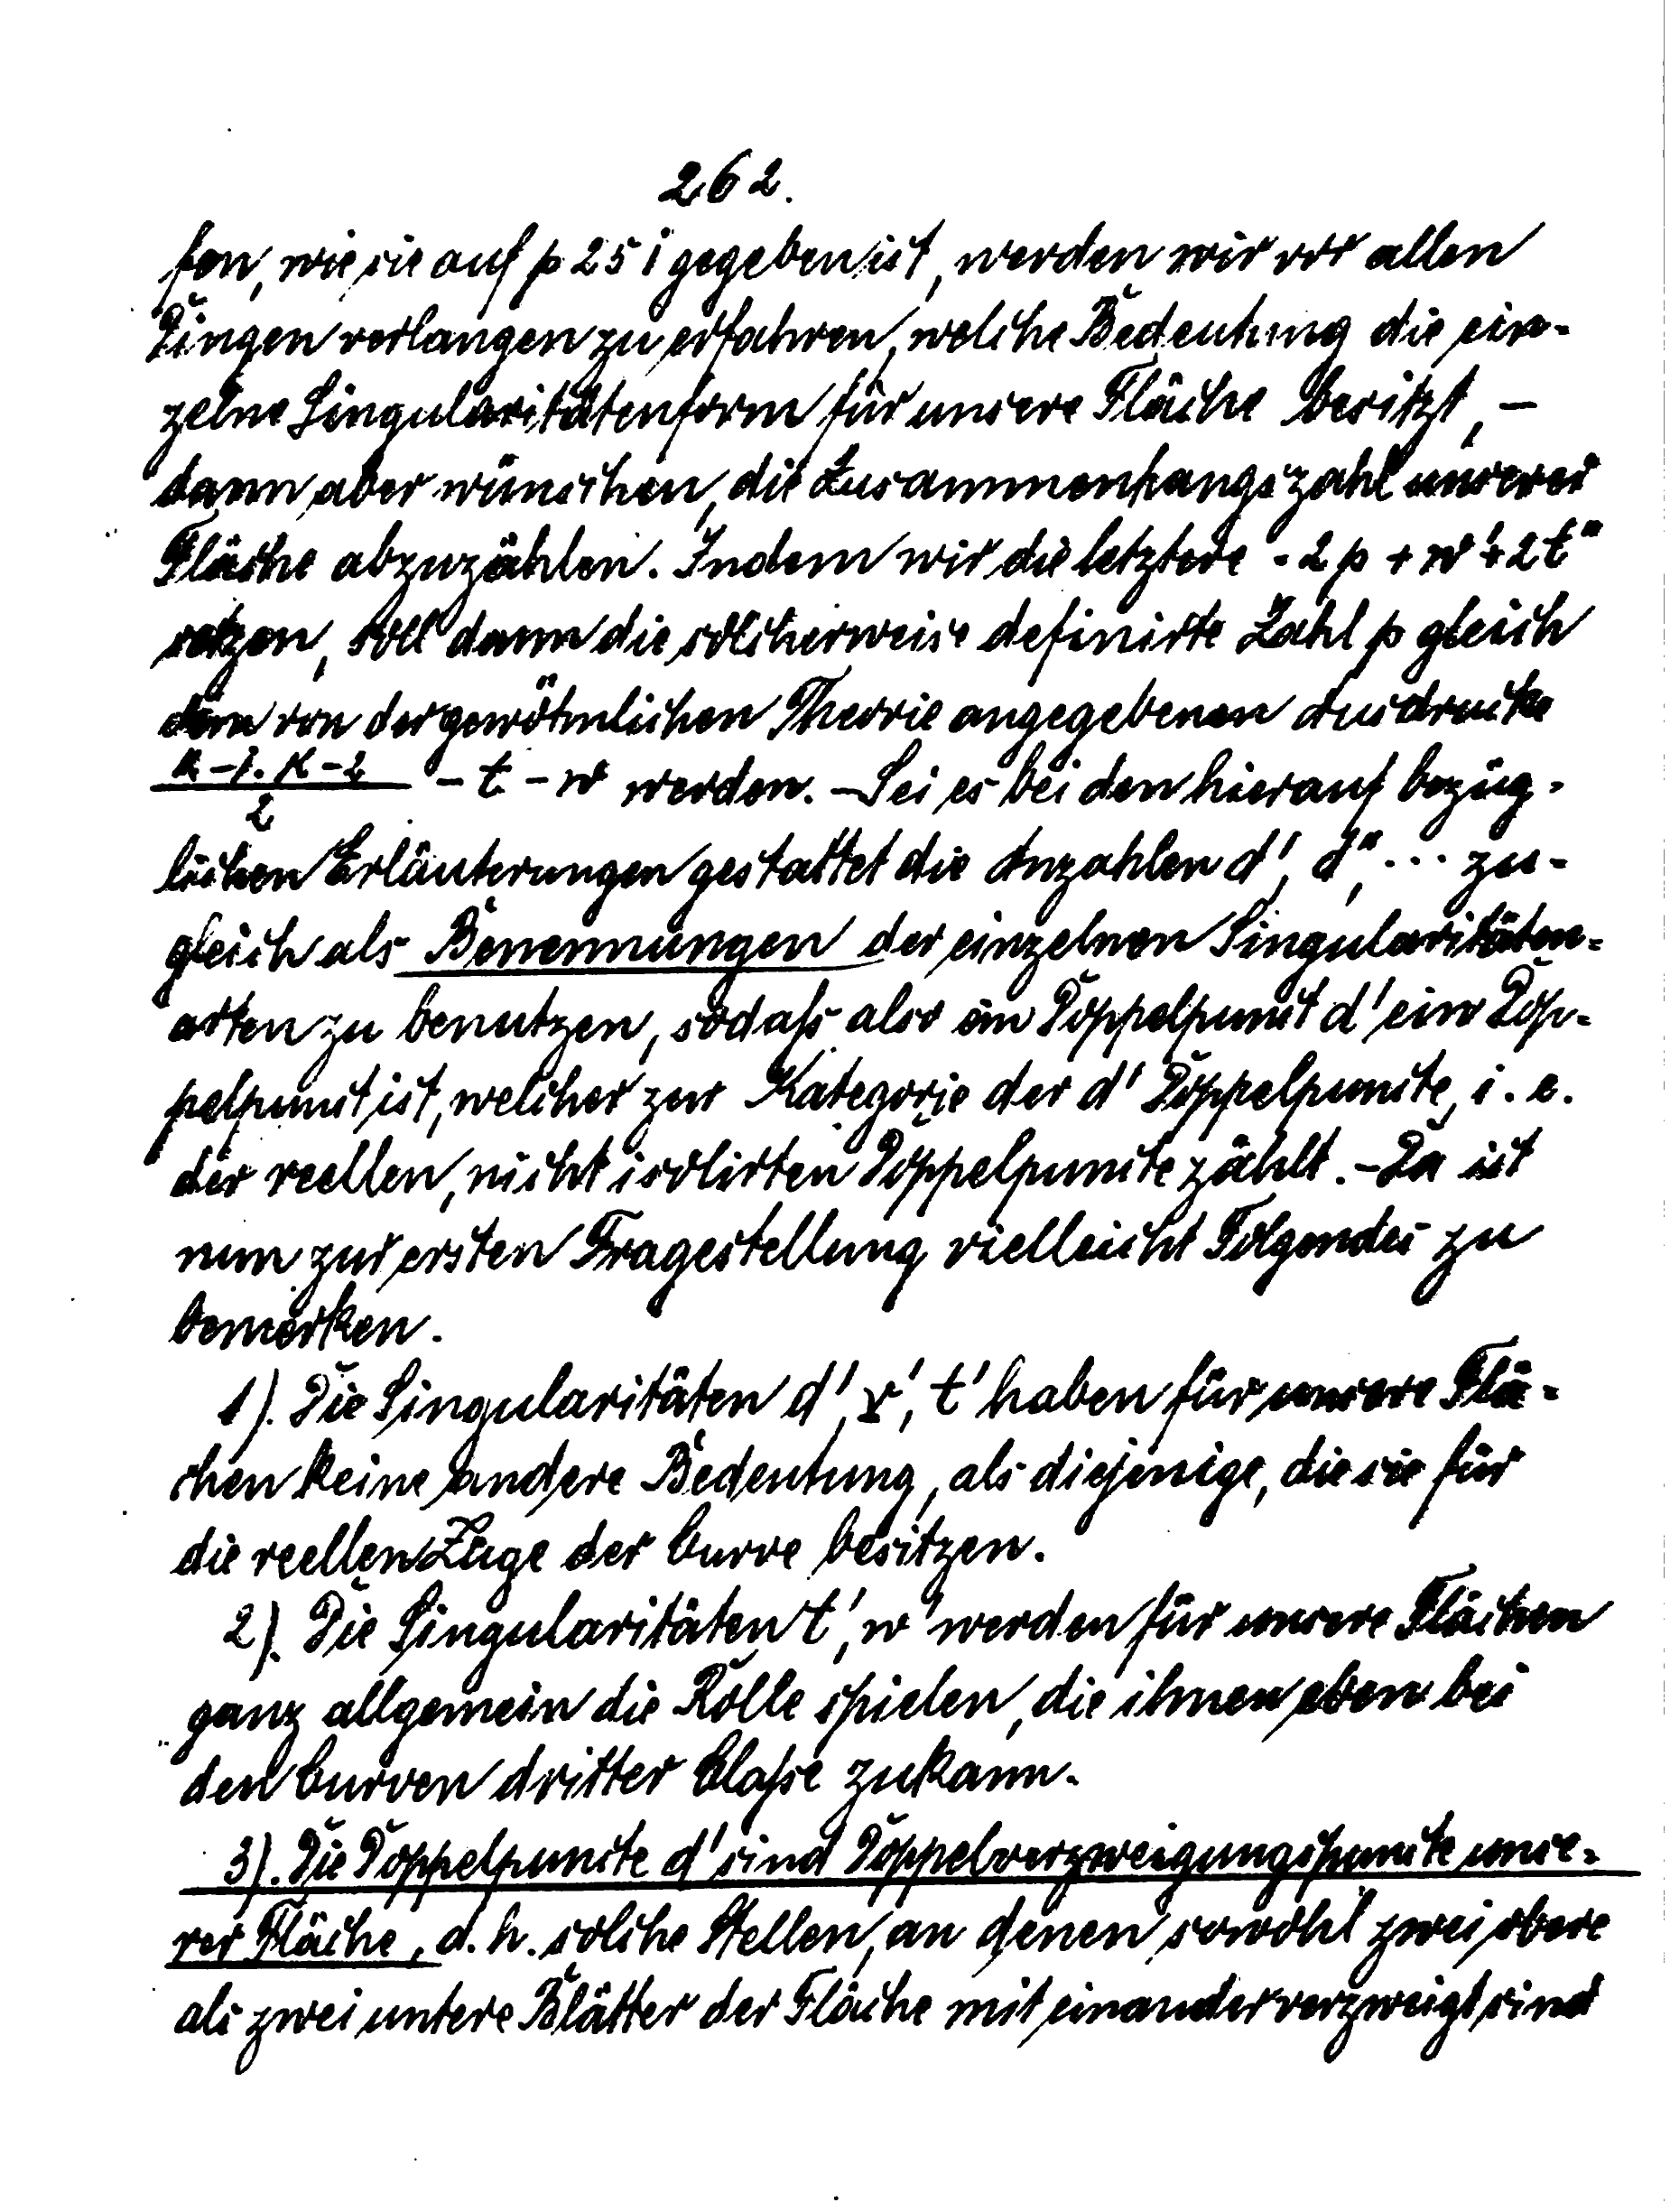 262.
fen, wie sie auf p 251 gegeben ist, werden wir vor allen
Dingen verlangen zu erfahren, welche Bedeutung die ein-
zelne Singularitätenform für unsere Fläche besitzt, –
dann aber wünschen, die Zusammenhangszahl unserer
Fläche abzuzählen. Indem wir die letztere - 2p + w' + 2t"
setzen, soll dann die solcherweise definirte Zahl p gleich
dem von der gewöhnlichen Theorie angegebenen Ausdrucke
k-1. k-2 / 2 - t - w werden. – Sei es bei den hierauf bezüg-
lichen Erläuterungen gestattet die Anzahlen d', d", ... zu-
gleich als Benennungen der einzelnen Singularitäten-
arten zu benutzen, sodaß also ein Doppelpunct d' ein Dop-
pelpunct ist, welcher zur Kategorie der d' Doppelpuncte, i. e.
der reellen, nicht isolirten Doppelpuncte zählt. – Da ist
nun zur ersten Fragestellung vielleicht Folgendes zu
bemerken.
1). Die Singularitäten d', r', t' haben für unsere Flä-
chen keine andere Bedeutung, als diejenige, die sie für
die reellen Züge der Curve besitzen.
2). Die Singularitäten t', w' werden für unsere Flächen
ganz allgemein die Rolle spielen, die ihnen eben bei
den Curven dritter Claße zukam.
3). Die Doppelpuncte d' sind Doppelverzweigungspuncte unse-
rer Fläche, d. h. solche Stellen, an denen sowohl zwei obere
als zwei untere Blätter der Fläche mit einander verzweigt sind